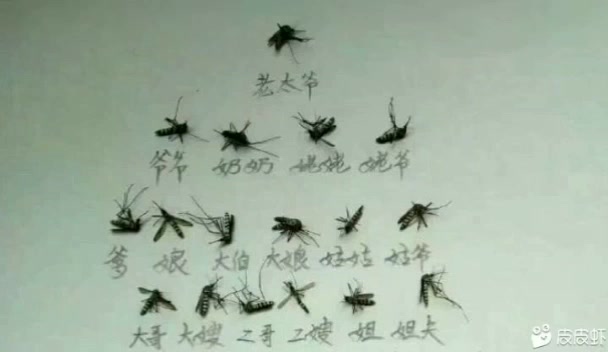 老太爷
爷爷 奶奶 姥姥 姥爷
爹 娘 大伯 大娘 姑姑 姑爷
大哥 大嫂 二哥 二嫂 姐 姐夫
皮皮虾